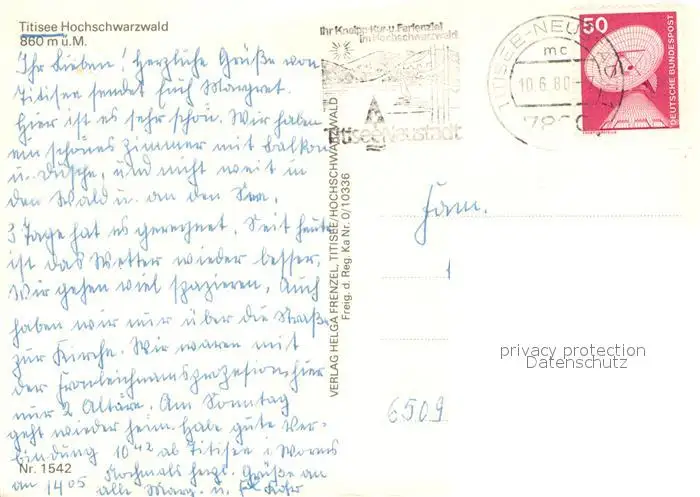 Titisee Hochschwarzwald
860 m ü.M.
Ihr Lieben! Herzliche Grüße von
Titisee sendet Euch Margret.
Hier ist es sehr schön. Wir haben
ein schönes Zimmer mit Balkon
u. Dusche, und nicht weit in
den Wald u. an den See,
3 Tage hat es geregnet. Seit heute
ist das Wetter wieder besser.
Wir gehen viel spazieren. Auch
haben wir nur über die Straße
zur Kirche. Wir waren mit
der Fronleichnamsprozesion, hier
nur 2 Altäre. Am Sonntag
geht wieder heim. Habe gute Ver-
bindung 10 42 ab Titisee i Worms
an 14 05 Nochmals herzl. Grüße an
alle Marg. u.
Nr. 1542
VERLAG HELGA FRENZEL, TITISEE/HOCHSCHWARZWALD
Freig. d. Reg. Ka Nr. 0/10336
Ihr Kneipp-Kur-u.Ferienziel
im Hochschwarzwald
Titisee-Neustadt
TITISEE-NEUSTADT
mc
10.6.80
50
DEUTSCHE BUNDESPOST
Fam.
6509
privacy protection
Datenschutz